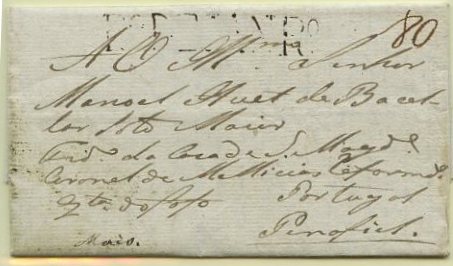 80
A O Ill.mo Senhor
Manoel Huet de Bacel-
lar Soto Maior
Fid.o da Casa de S. Mag.de
Coronel de Milicias Reformd.o
Portugal
Qta. do Poço
Penafiel.
Maio.